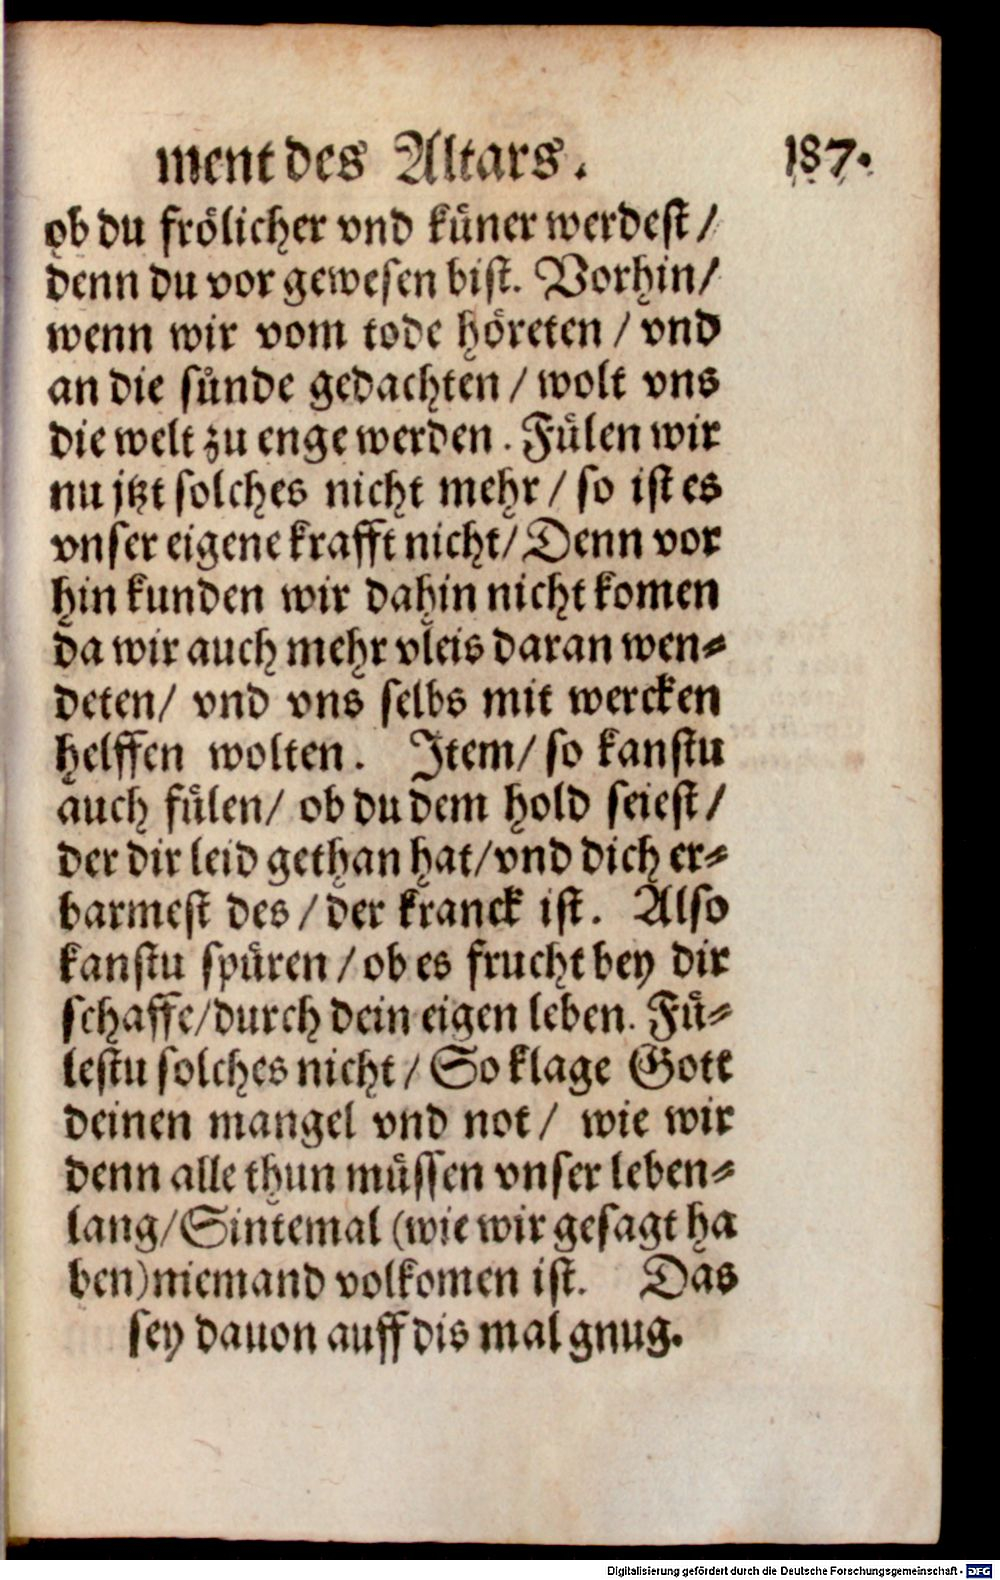 ment des Altars. 187.
ob du frölicher vnd küner werdest /
denn du vor gewesen bist. Vorhin /
wenn wir vom tode höreten / vnd
an die sünde gedachten / wolt vns
die welt zu enge werden. Fülen wir
nu jtzt solches nicht mehr / so ist es
vnser eigene krafft nicht / Denn vor
hin kunden wir dahin nicht komen
da wir auch mehr vleis daran wen⸗
deten / vnd vns selbs mit wercken
helffen wolten. Item / so kanstu
auch fülen / ob du dem hold seiest /
der dir leid gethan hat / vnd dich er⸗
barmest des / der kranck ist. Also
kanstu spüren / ob es frucht bey dir
schaffe / durch dein eigen leben. Fü⸗
lestu solches nicht / So klage Gott
deinen mangel vnd not / wie wir
denn alle thun müssen vnser leben⸗
lang / Sintemal (wie wir gesagt ha
ben) niemand volkomen ist. Das
sey dauon auff dis mal gnug.
Digitalisierung gefördert durch die Deutsche Forschungsgemeinschaft - DFG